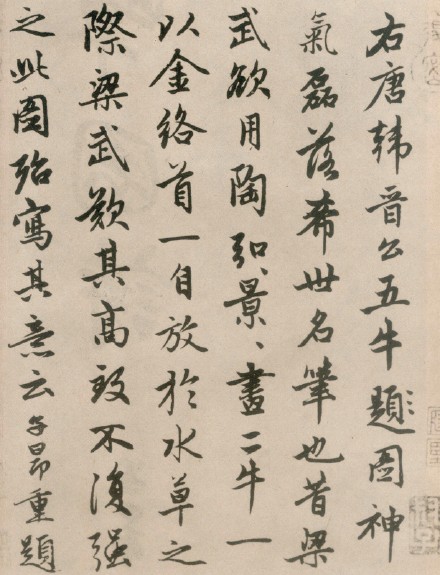 右唐韓晉公五牛題圖神
氣磊落希世名筆也昔梁
武欲用陶弘景、畫二牛一
以金絡首一自放於水草之
際梁武歎其高致不復强
之此圖殆寫其意云子昂重題